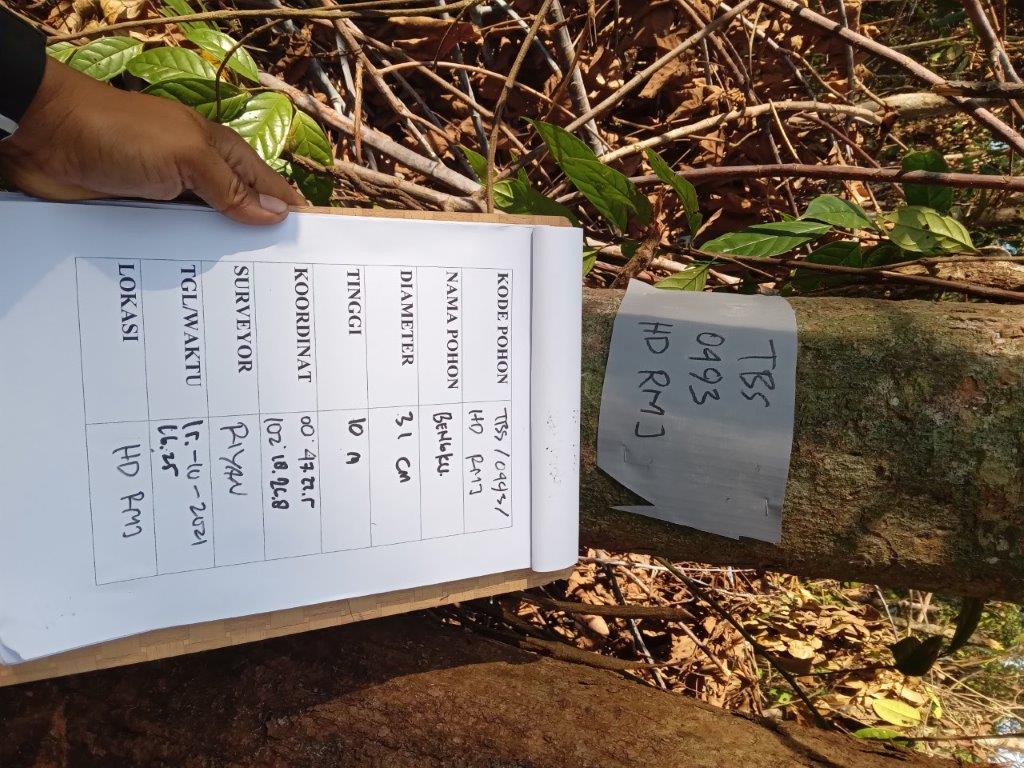 TBS
0493
HD RMJ
KODE POHON TBS/0493/
HD RMJ
NAMA POHON BENGKU.
DIAMETER 31 CM
TINGGI 10 M
KOORDINAT 00° 47.22.5
102° 18.26.8
SURVEYOR RIYAN
TGL/WAKTU 15.-10-2021
16.25
LOKASI HD RMJ